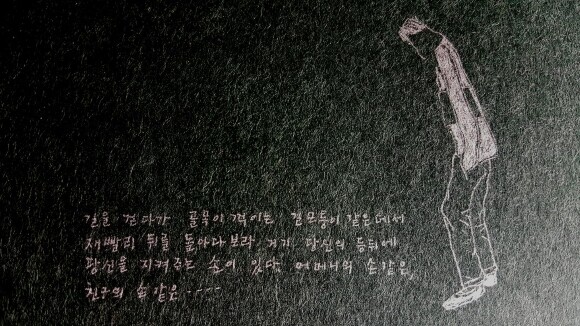 길을 걷다가 골목이 꺾이는 길모퉁이 같은 데서
재빨리 뒤를 돌아다보라 거기 당신의 등뒤에
당신을 지켜주는 손이 있다. 어머니의 손같은,
친구의 손 같은 ----